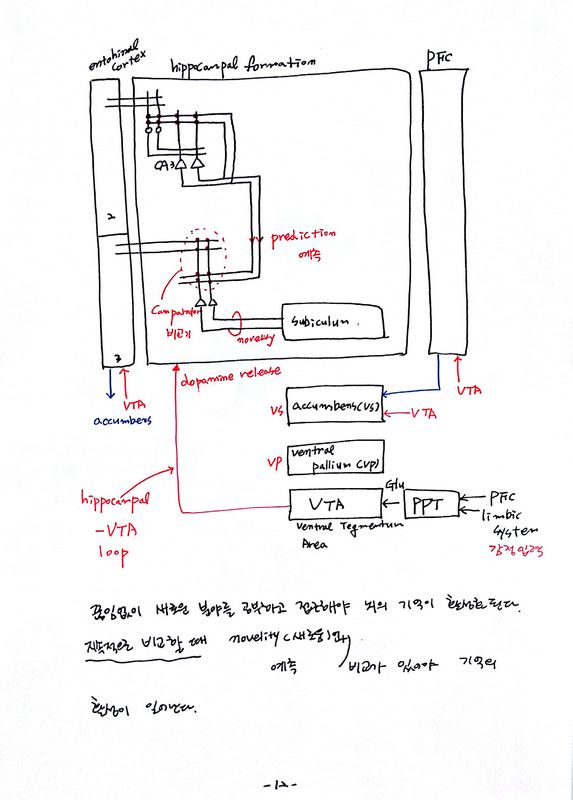 entohinal
cortex
hippocampal formation
PFC
CA3
2
prediction
예측
Camparator
비교기
novelty
subiculum.
3
VTA
accumbens
dopamine release
VS
accumbens(VS)
VTA
VTA
VP
ventral
pallium(VP)
hippocampal
-VTA
loop
VTA
Glu
PPT
PFC
limbic
system
감정입력
Ventral Tegmentum
Area
끊임없이 새로운 분야를 공부하고 접근해야 뇌의 기억이 활성화된다.
지속적으로 비교할 때 novelity(새로움)와
예측 비교가 있어야 기억의
활성이 일어난다.
-12-